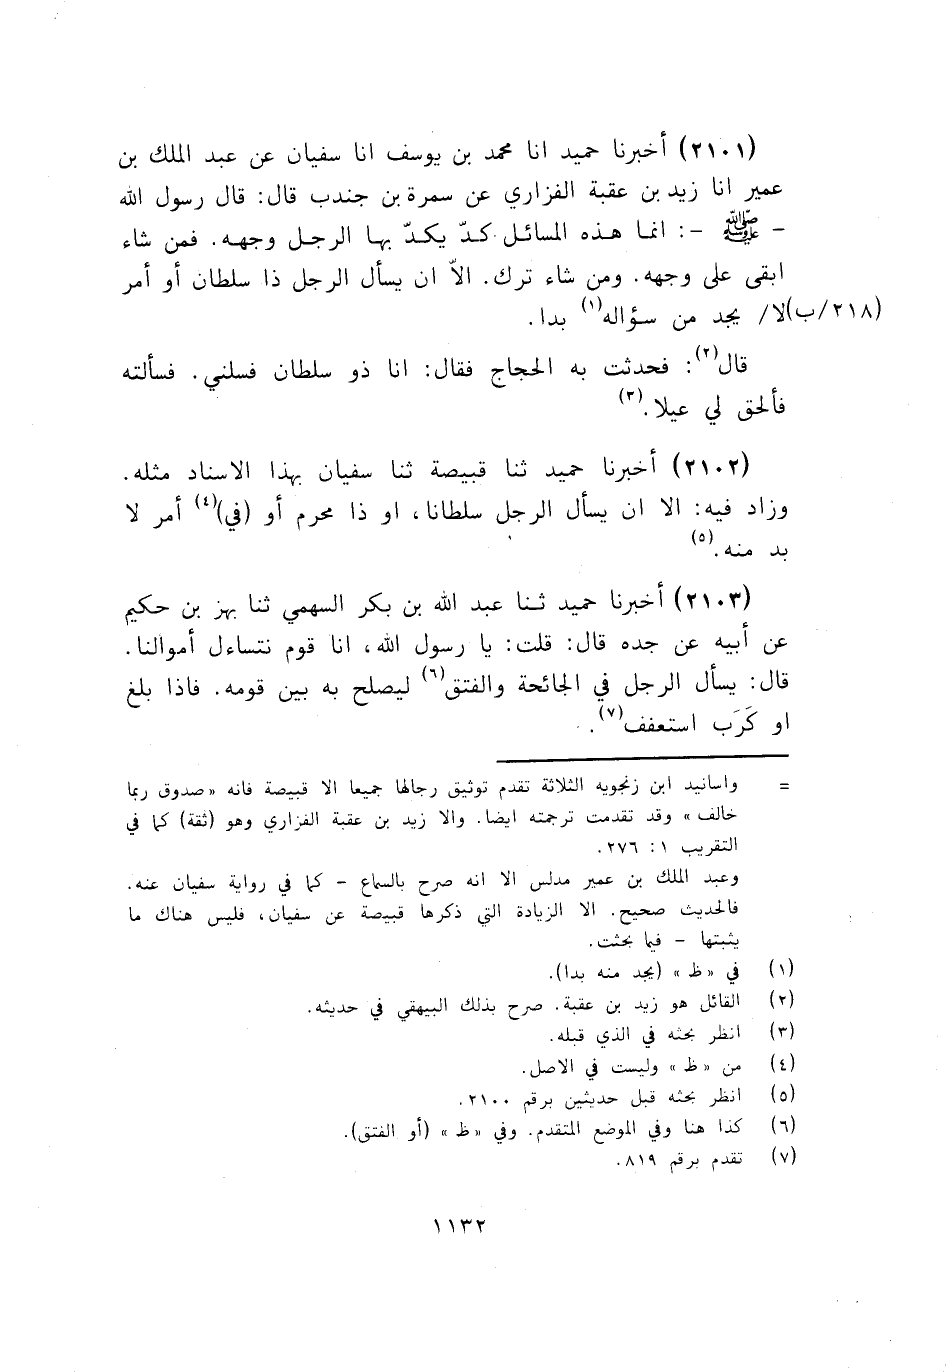 (٢١٠١) أخبرنا حميد انا محمد بن يوسف انا سفيان عن عبد الملك بن
عمير انا زيد بن عقبة الفزاري عن سمرة بن جندب قال: قال رسول الله
- ﷺ -: انما هذه المسائل كدّ يكدّ بها الرجل وجهه. فمن شاء
ابقى على وجهه. ومن شاء ترك. الاّ ان يسأل الرجل ذا سلطان أو أمر
(٢١٨/ب) لا/ يجد من سؤاله(١) بدا.
قال(٢): فحدثت به الحجاج فقال: انا ذو سلطان فسلني. فسألته
فألحق لي عيلا.(٣)
(٢١٠٢) أخبرنا حميد ثنا قبيصة ثنا سفيان بهذا الاسناد مثله.
وزاد فيه: الا ان يسأل الرجل سلطانا، او ذا محرم أو (في)(٤) أمر لا
بد منه.(٥)
(٢١٠٣) أخبرنا حميد ثنا عبد الله بن بكر السهمي ثنا بهز بن حكيم
عن أبيه عن جده قال: قلت: يا رسول الله، انا قوم نتساءل أموالنا.
قال: يسأل الرجل في الجائحة والفتق(٦) ليصلح به بين قومه. فاذا بلغ
او كَرَب استعفف(٧).
= واسانيد ابن زنجويه الثلاثة تقدم توثيق رجالها جميعا الا قبيصة فانه «صدوق ربما
خالف» وقد تقدمت ترجمته ايضا. والا زيد بن عقبة الفزاري وهو (ثقة) كما في
التقريب ١: ٢٧٦.
وعبد الملك بن عمير مدلس الا انه صرح بالسماع - كما في رواية سفيان عنه.
فالحديث صحيح. الا الزيادة التي ذكرها قبيصة عن سفيان، فليس هناك ما
يثبتها - فيما بحثت.
(١) في «ظ» (يجد منه بدا).
(٢) القائل هو زيد بن عقبة. صرح بذلك البيهقي في حديثه.
(٣) انظر بحثه في الذي قبله.
(٤) من «ظ» وليست في الاصل.
(٥) انظر بحثه قبل حديثين برقم ٢١٠٠.
(٦) كذا هنا وفي الموضع المتقدم. وفي «ظ» (أو الفتق).
(٧) تقدم برقم ٨١٩.
١١٣٢